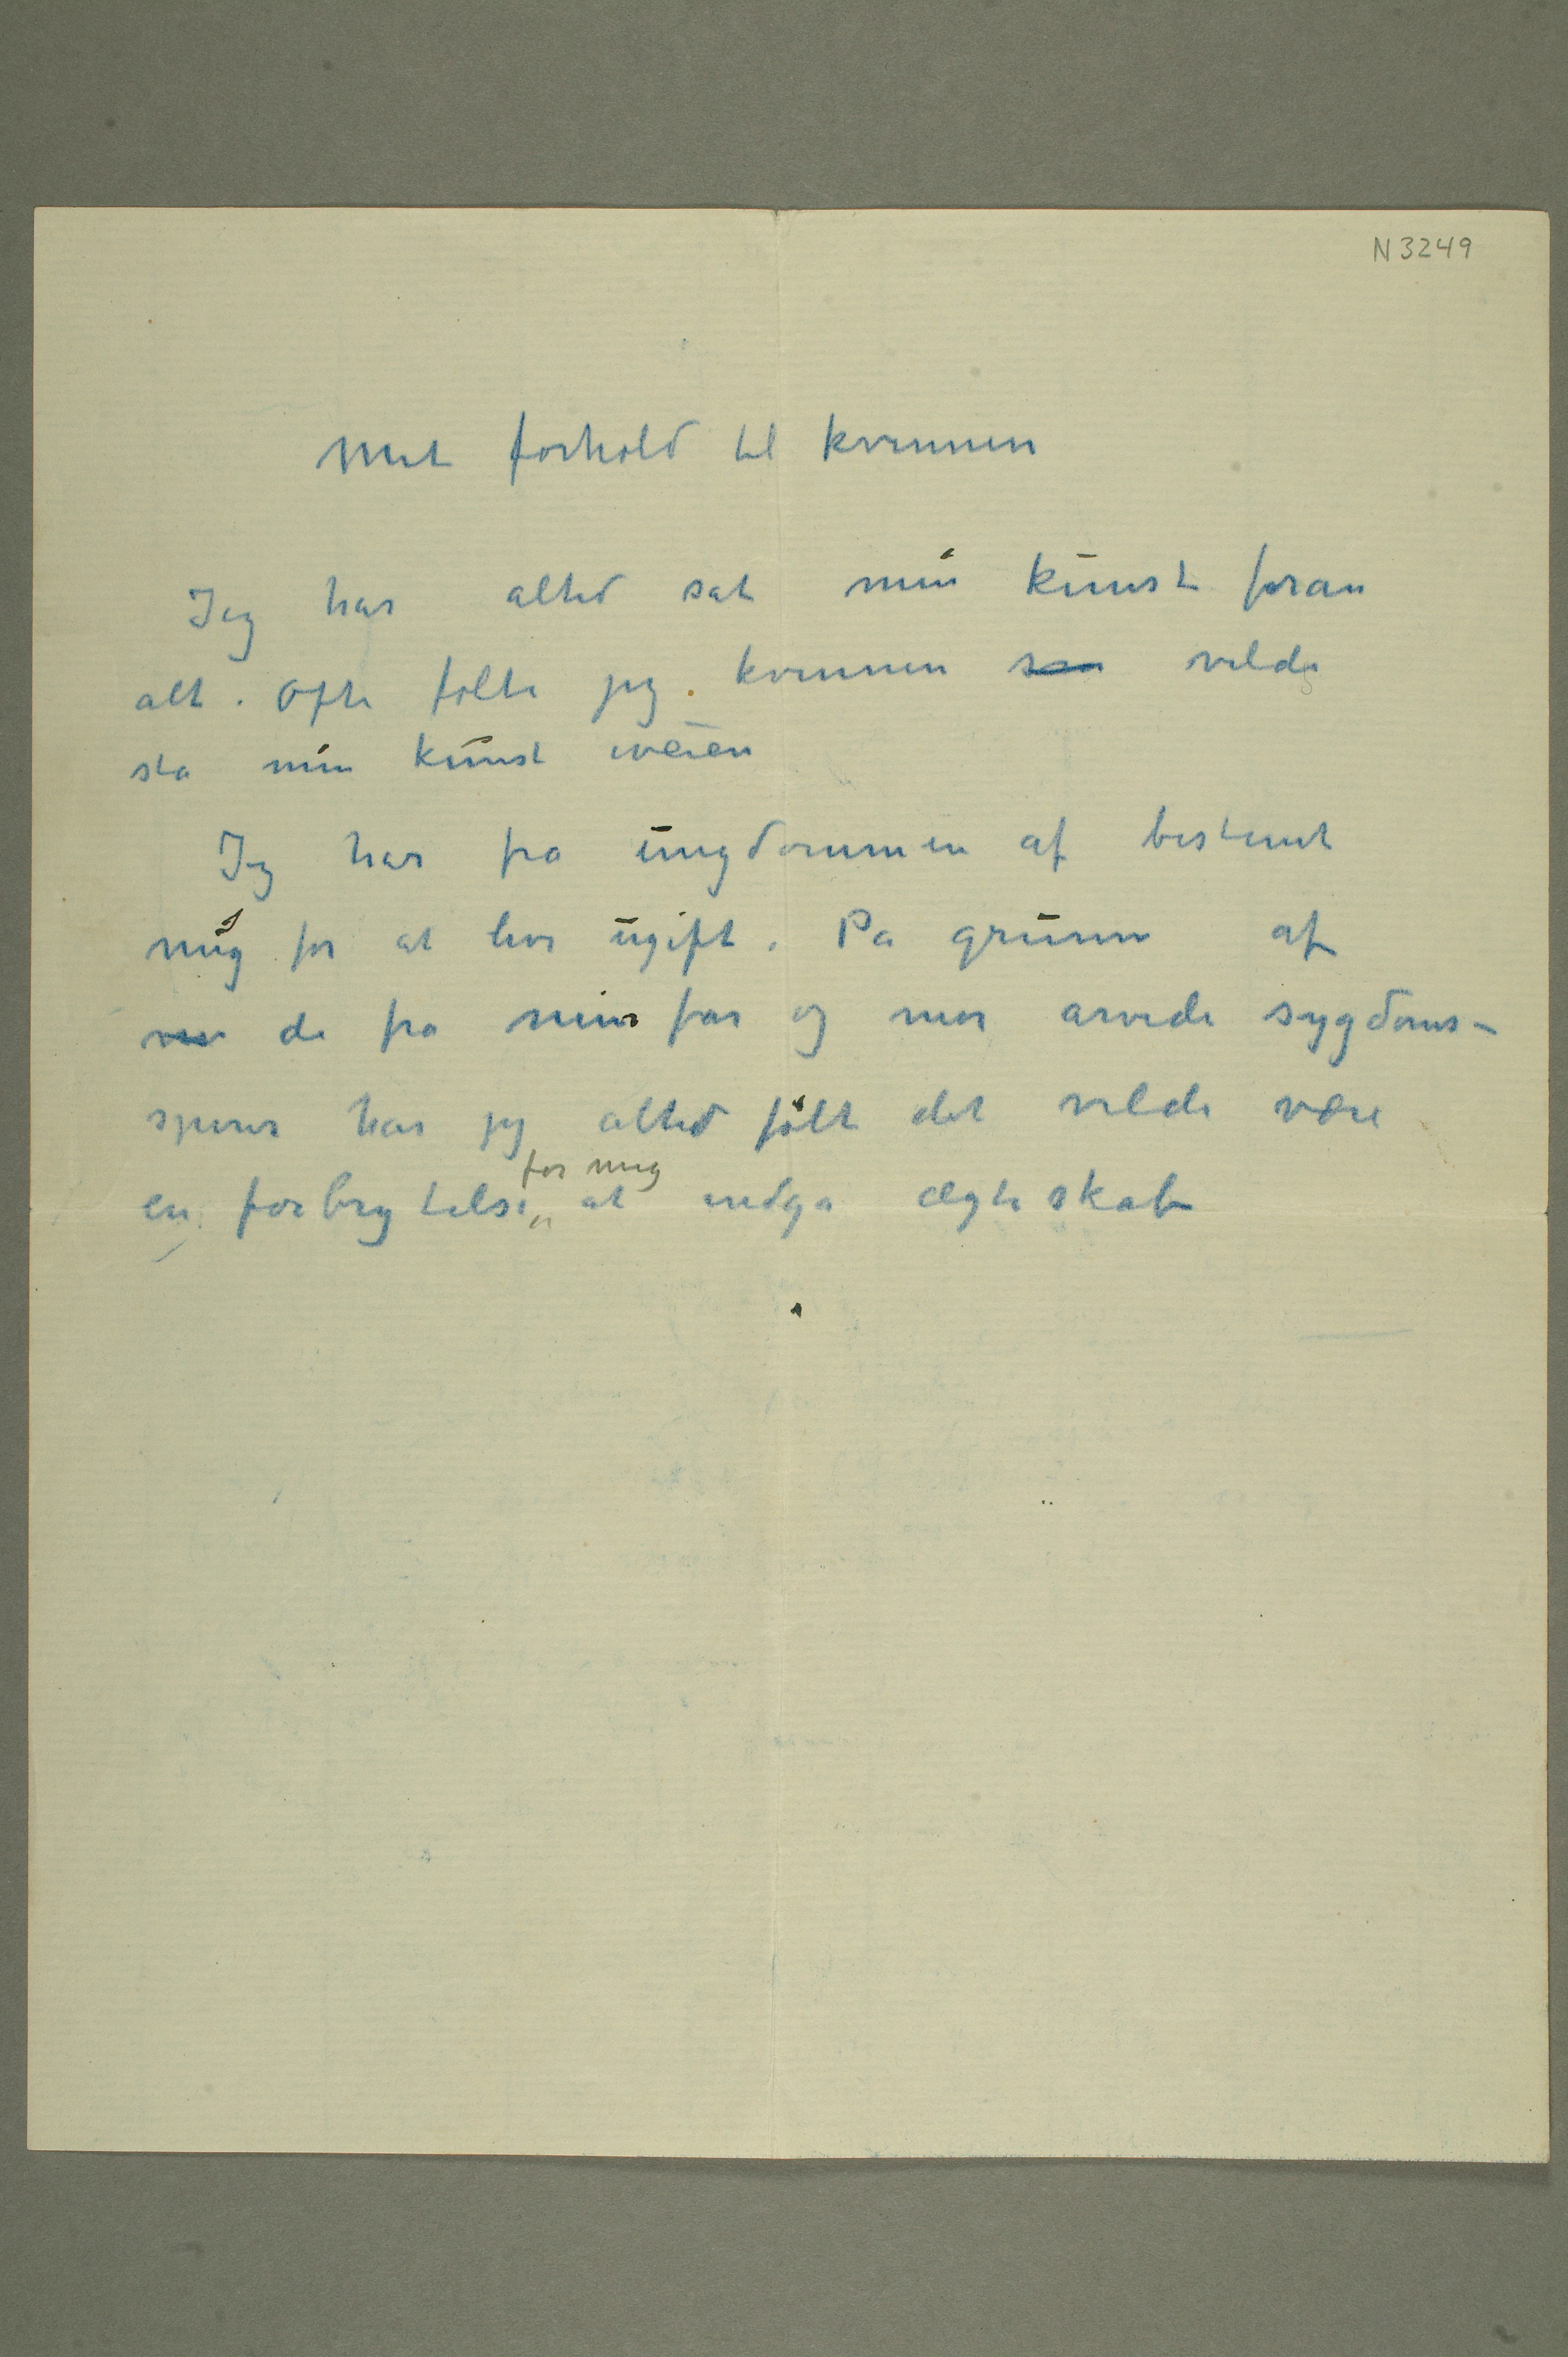 N 3249
Mit forhold til kvinnen
Jeg har altid sat min kunst foran
alt. Ofte følte jeg kvinnen vilde
sta min kunst iveien
Jeg har fra ungdommen af bestemt
mig for at leve ugift. Pa grunn af
de fra min far og mor arvede sygdoms-
spirer har jeg altid følt det vilde være
for mig
en forbrytelse at indga ægteskab